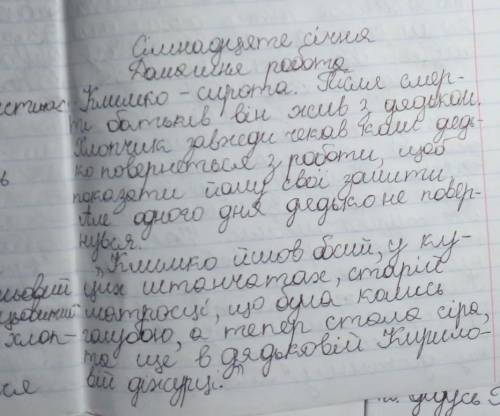 Сімнадцяте січня
Домашня робота
Климко - сирота. Після смер-
ти батьків він жив з дядьком.
Хлопчик завжди чекав коли дядь-
ко повернеться з роботи, щоб
показати йому свої зошити.
Але одного дня дядько не повер-
нувся.
"Климко йшов босий, у ку-
цих штанчатах, старій
матросці, що була колись
голубою, а тепер стала сіра,
та ще в дядьковій Кирило-
вій діжурці."